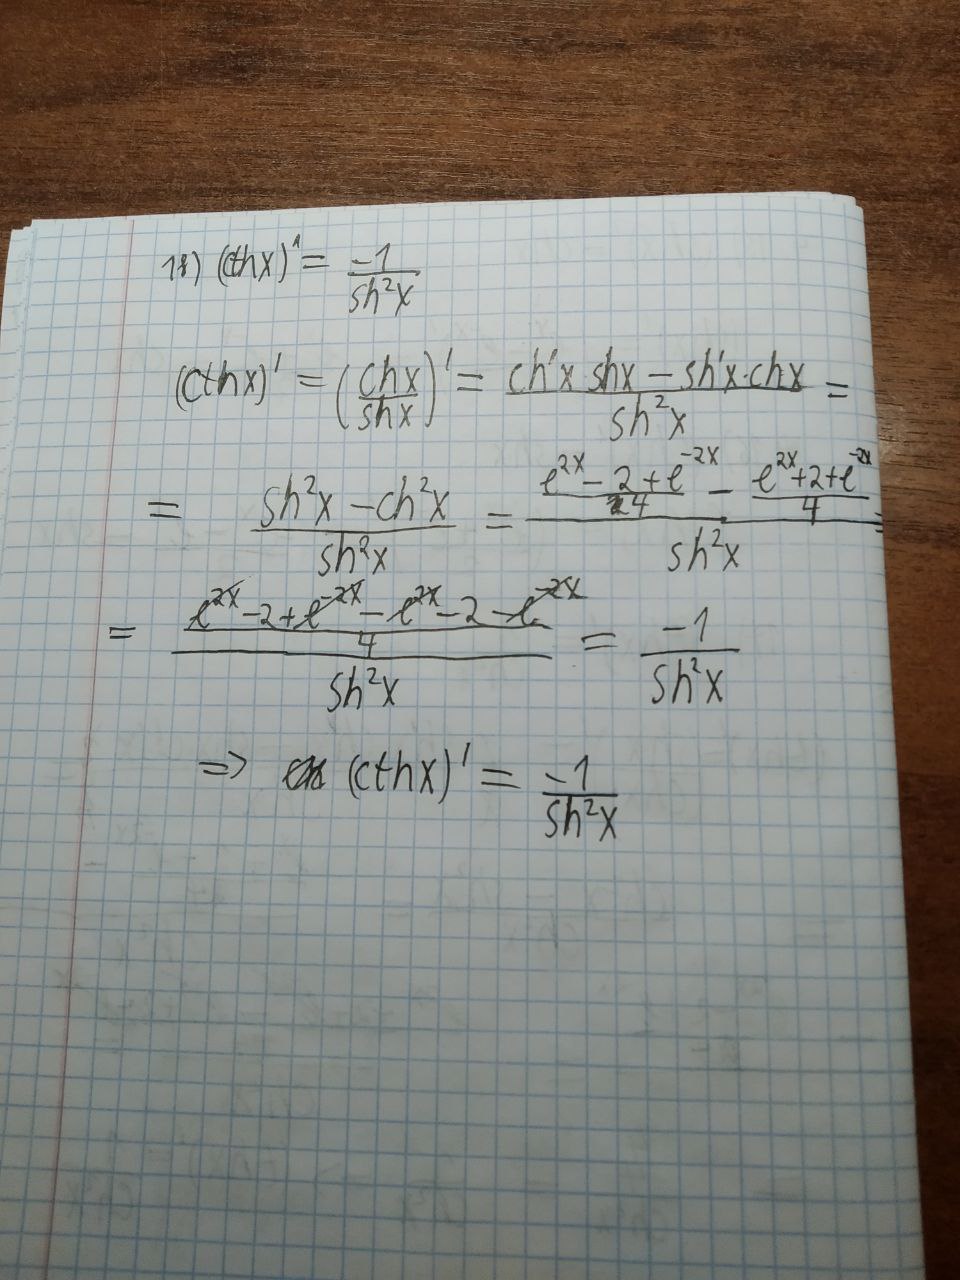 18) (cthx)' = -1/sh²x
(cthx)' = (chx/shx)' = (ch'x shx - sh'x·chx)/sh²x =
= (sh²x - ch²x)/sh²x = ((e^{2x} - 2 + e^{-2x})/4 - (e^{2x} + 2 + e^{-2x})/4)/sh²x =
= ((e^{2x} - 2 + e^{-2x} - e^{2x} - 2 - e^{-2x})/4)/sh²x = -1/sh²x
=> (cthx)' = -1/sh²x